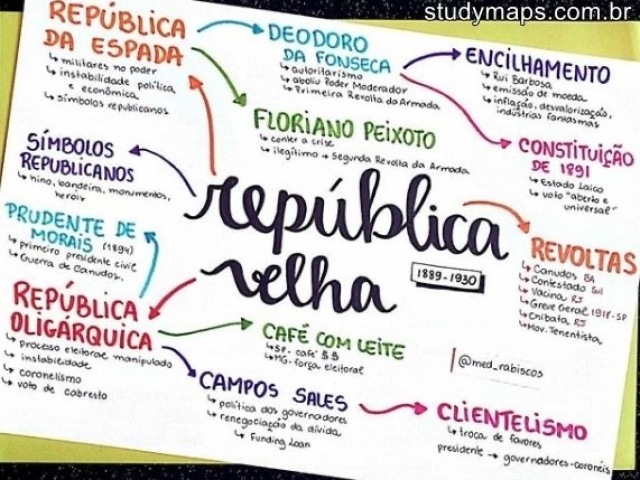 studymaps.com.br
REPÚBLICA
DA ESPADA
militares no poder
instabilidade política
e econômica
símbolos republicanos
DEODORO
DA FONSECA
autoritarismo
aboliu Poder Moderador
Primeira Revolta da Armada
ENCILHAMENTO
Rui Barbosa
emissão de moeda
inflação, desvalorização,
indústrias fantasmas
FLORIANO PEIXOTO
conter a crise
ilegítimo → Segunda Revolta da Armada
CONSTITUIÇÃO
DE 1891
Estado Laico
voto "aberto e
universal"
SÍMBOLOS
REPUBLICANOS
hino, bandeira, monumentos,
heróis
república
velha
1889-1930
PRUDENTE DE
MORAIS (1894)
primeiro presidente civil
Guerra de Canudos
REVOLTAS
Canudos BA
Contestado Sul
Vacina RJ
Greve Geral 1917-SP
Chibata RJ
Mov. Tenentista
REPÚBLICA
OLIGÁRQUICA
processo eleitoral manipulado
instabilidade
coronelismo
voto de cabresto
CAFÉ COM LEITE
SP. café $$
MG. força eleitoral
@med_rabiscos
CAMPOS SALES
política dos governadores
renegociação da dívida
Funding Loan
CLIENTELISMO
troca de favores
presidente → governadores-coronéis